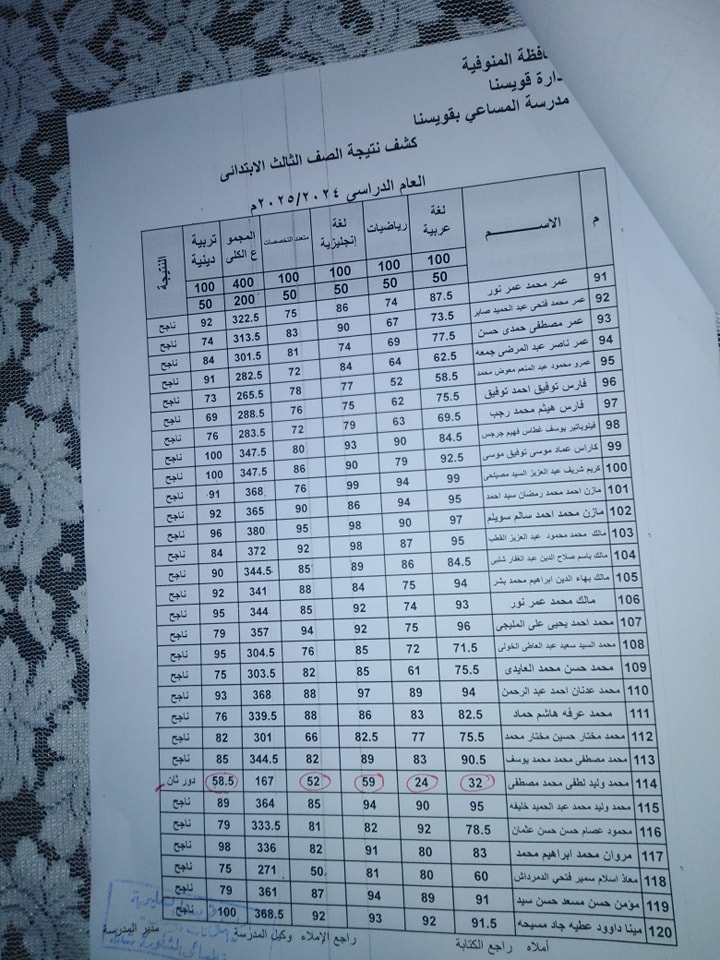 افظة المنوفية
دارة قويسنا
مدرسة المساعي بقويسنا
كشف نتيجة الصف الثالث الابتدائى
العام الدراسي ٢٠٢٥/٢٠٢٤م
م الاســـــــــم لغة عربية رياضيات لغة إنجليزية متعدد التخصصات المجموع الكلى تربية دينية النتيجة
100 100 100 100 400 100
50 50 50 50 200 50
91 عمر محمد عمر نور 87.5 74 86 75 322.5 92 ناجح
92 عمر محمد فتحى عبد الحميد صابر 73.5 67 90 83 313.5 74 ناجح
93 عمر مصطفى حمدى حسن 77.5 69 74 81 301.5 84 ناجح
94 عمر ناصر عبد المرضى جمعه 62.5 64 84 72 282.5 91 ناجح
95 عمرو محمود عبد المنعم معوض محمد 58.5 52 77 78 265.5 73 ناجح
96 فارس توفيق احمد توفيق 75.5 62 75 76 288.5 69 ناجح
97 فارس هيثم محمد رجب 69.5 63 79 72 283.5 76 ناجح
98 فيلوباتير يوسف غطاس فهيم جرجس 84.5 90 93 80 347.5 100 ناجح
99 كاراس عماد موسى توفيق موسى 92.5 79 90 86 347.5 100 ناجح
100 كريم شريف عبد العزيز السيد مصيلحى 99 94 99 76 368 91 ناجح
101 مازن احمد محمد رمضان سيد احمد 95 94 86 90 365 92 ناجح
102 مازن محمد احمد سالم سويلم 97 90 98 95 380 96 ناجح
103 مالك محمد محمود عبد العزيز القطب 95 87 98 92 372 84 ناجح
104 مالك باسم صلاح الدين عبد الغفار شلبى 84.5 86 89 85 344.5 90 ناجح
105 مالك بهاء الدين ابراهيم محمد بشر 94 75 84 88 341 92 ناجح
106 مالك محمد عمر نور 93 74 92 85 344 95 ناجح
107 محمد احمد يحيى على المليجى 96 75 92 94 357 79 ناجح
108 محمد السيد سعيد عبد العاطى الخولى 71.5 72 85 76 304.5 95 ناجح
109 محمد حسن محمد العايدى 75.5 61 85 82 303.5 75 ناجح
110 محمد عدنان احمد عبد الرحمن 94 89 97 88 368 93 ناجح
111 محمد عرفه هاشم حماد 82.5 83 86 88 339.5 76 ناجح
112 محمد مختار حسين مختار محمد 75.5 77 82.5 66 301 82 ناجح
113 محمد مصطفى محمد محمد يوسف 90.5 83 89 82 344.5 85 ناجح
114 محمد وليد لطفى محمد مصطفى 32 24 59 52 167 58.5 دور ثان
115 محمد وليد محمد عبد الحميد خليفه 95 90 94 85 364 89 ناجح
116 محمود عصام حسن حسن عثمان 78.5 92 82 81 333.5 79 ناجح
117 مروان محمد ابراهيم محمد 83 80 91 82 336 98 ناجح
118 معاذ اسلام سمير فتحي الدمرداش 60 80 81 50 271 75 ناجح
119 مؤمن حسن مسعد حسن سيد 91 89 94 87 361 79 ناجح
120 مينا داوود عطيه جاد مسيحه 91.5 92 93 92 368.5 100 ناجح
أملاه راجع الكتابة راجع الإملاء وكيل المدرسة مدير المدرسة